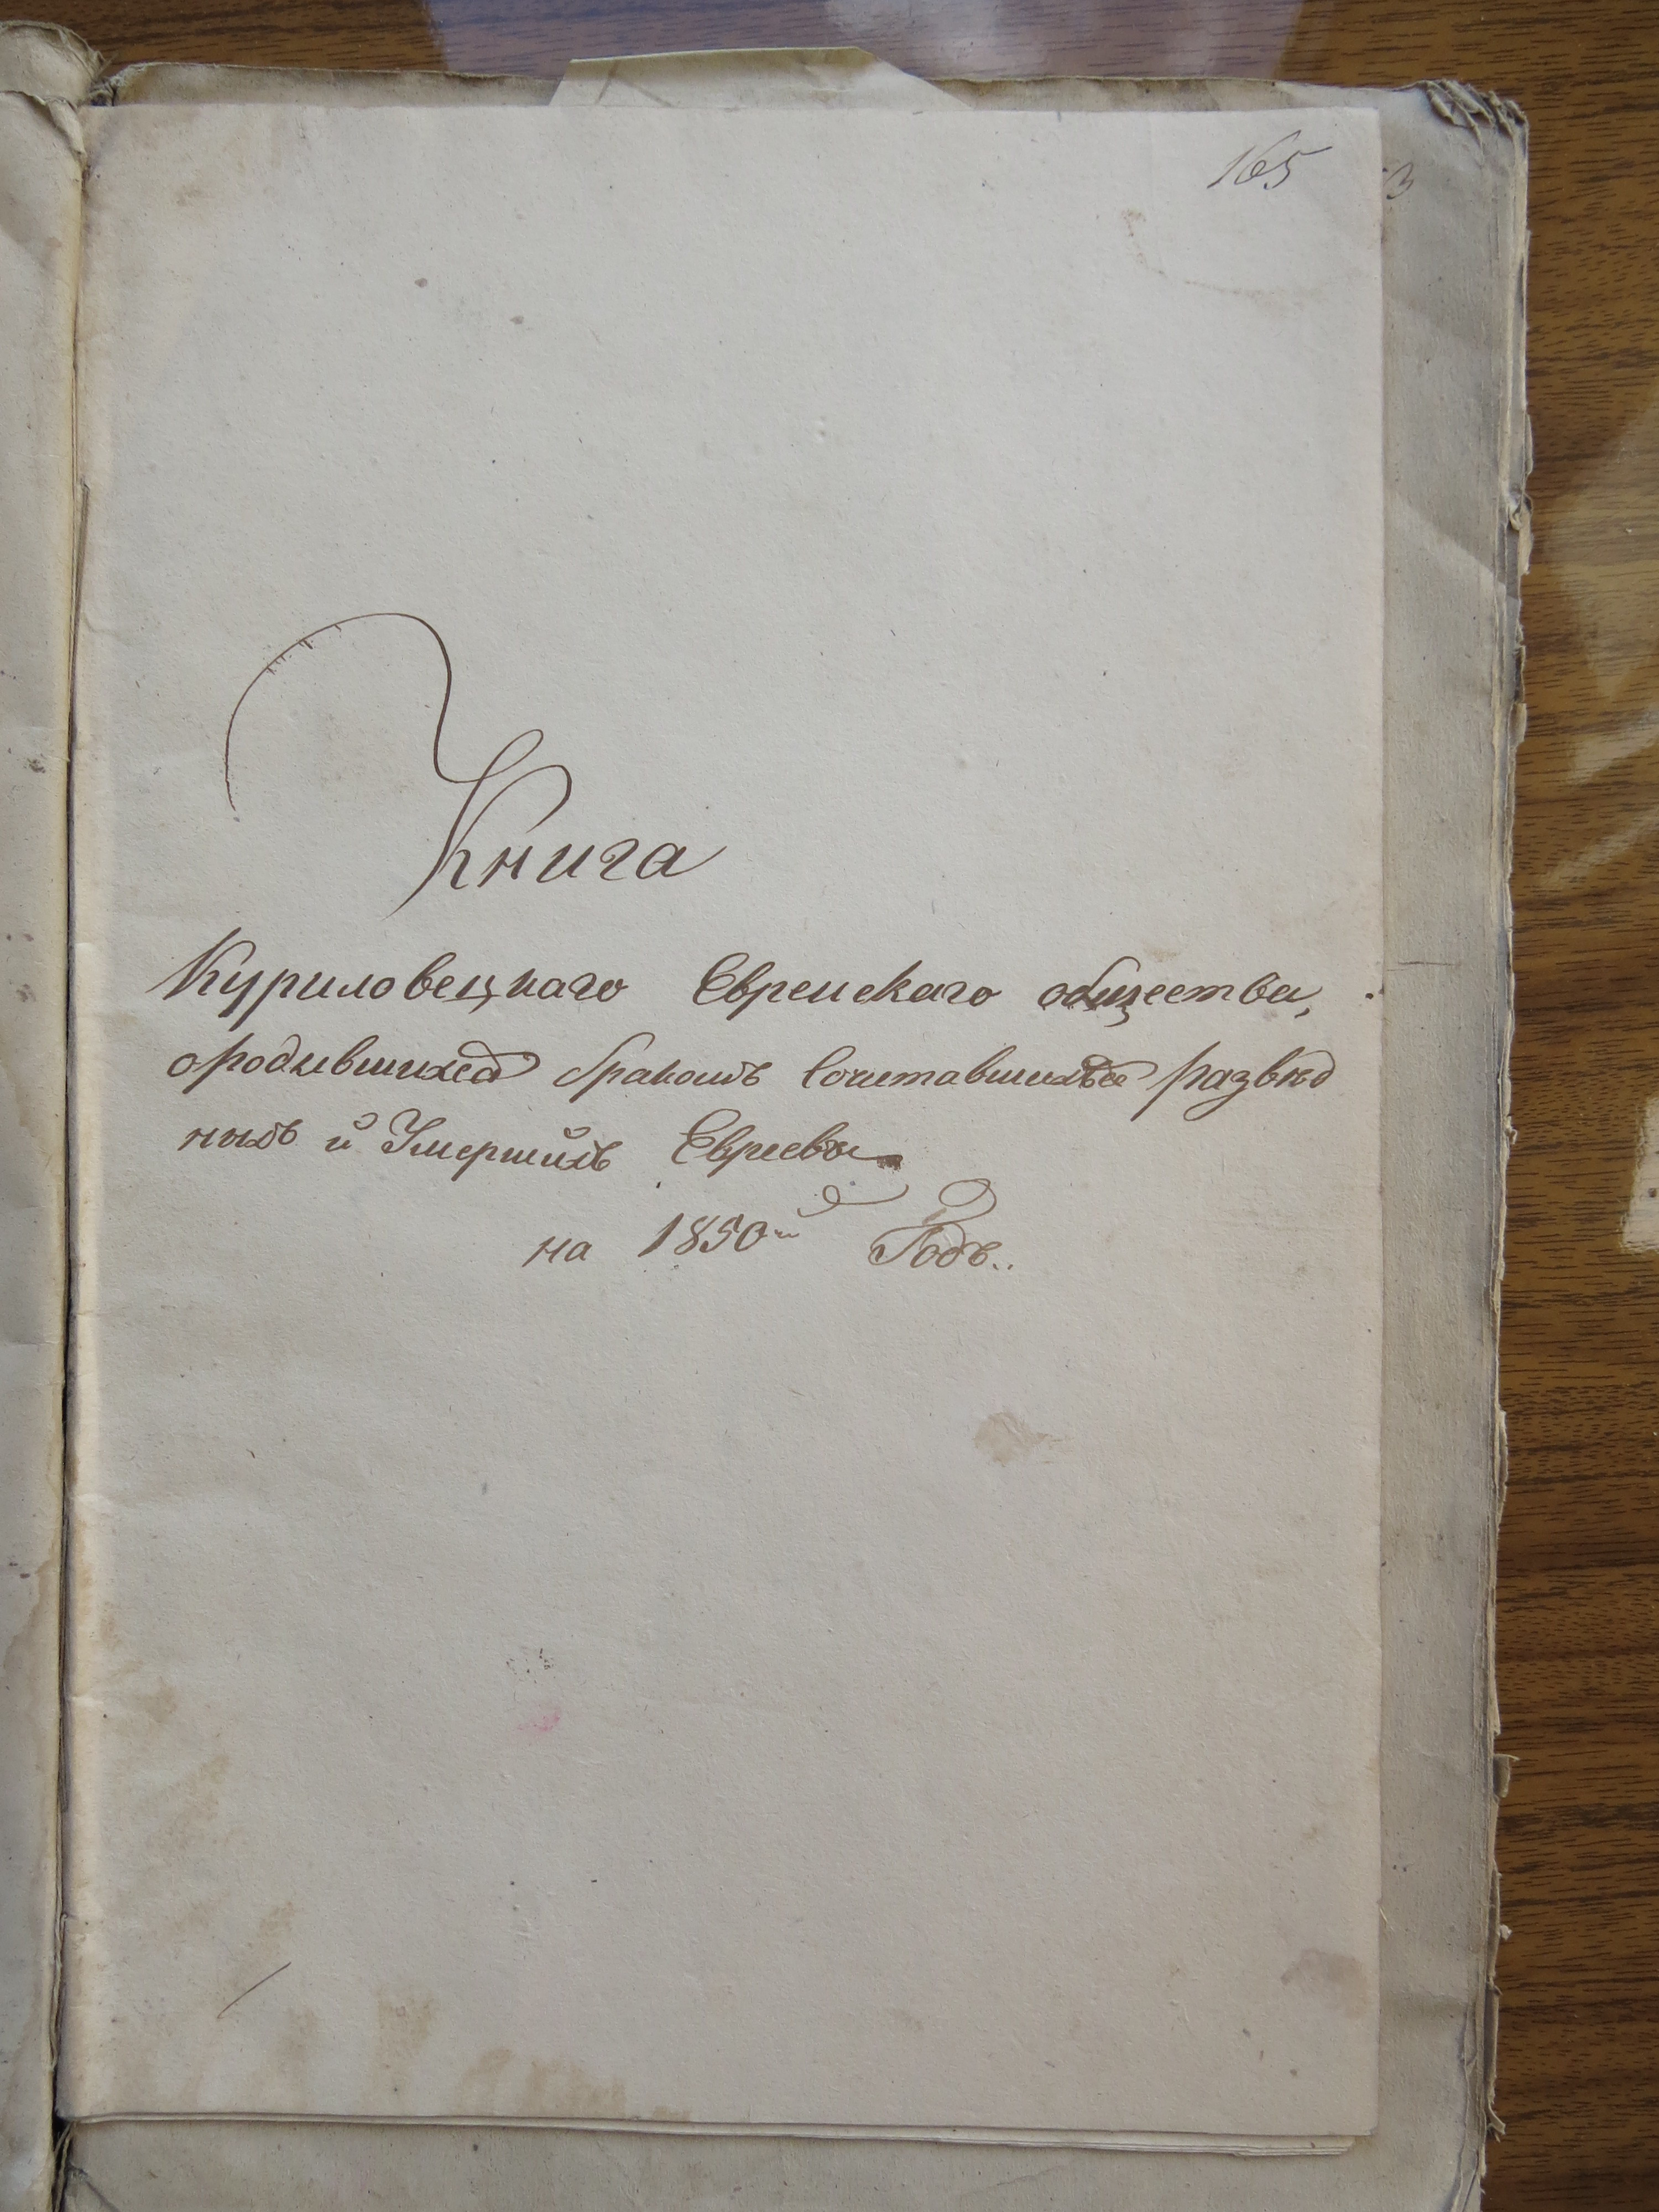 165
Книга
Куриловецкаго Евреискаго общества,
ородившихся бракомъ Сочитавшихъся развѣд
ныхъ й Умершйхъ Евреевъ
на 1850й Годъ..